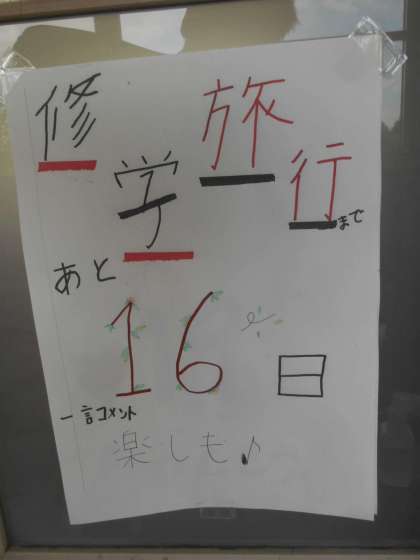 修学旅行まで
あと
16日
一言コメント
楽しも♪